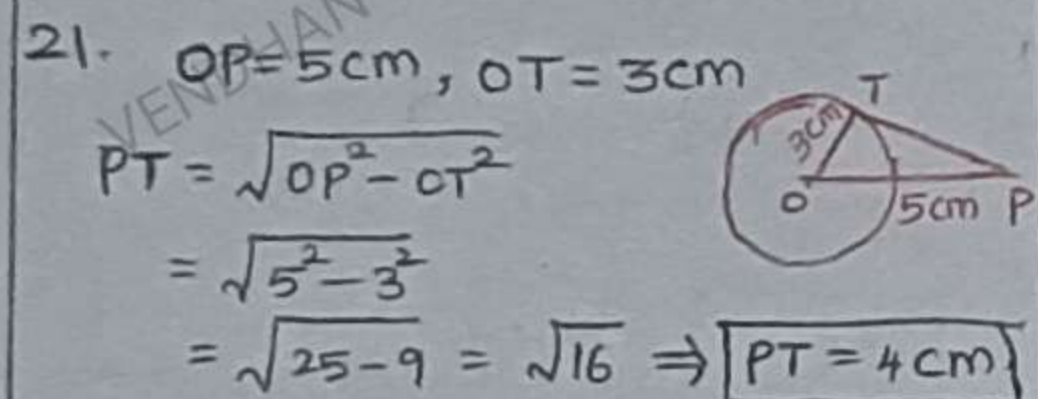 21. OP = 5cm, OT = 3cm
PT = √(OP² - OT²)
= √(5² - 3²)
= √(25-9) = √16 ⇒ PT = 4cm
T
3cm
O
5cm P